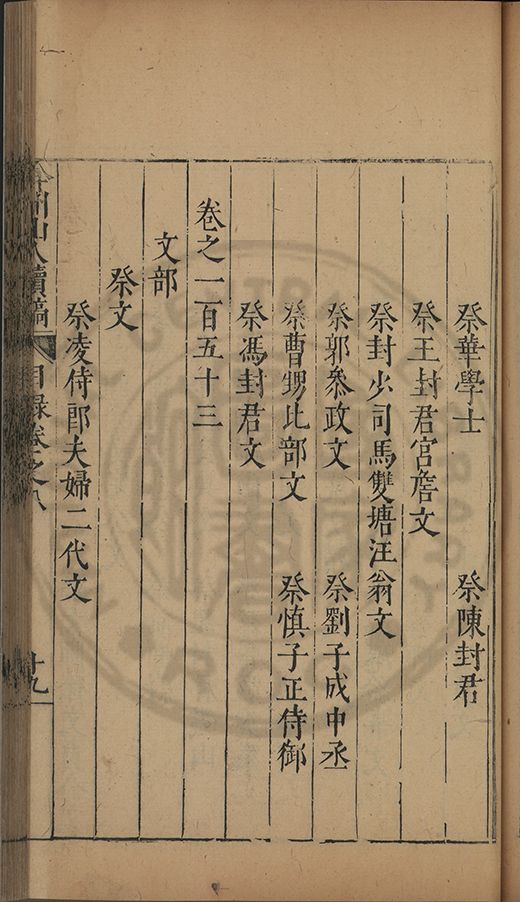 祭華學士　祭陳封君
祭王封君宫詹文
祭封少司馬雙塘汪翁文
祭郭叅政文　祭劉子成中丞
祭曹甥比部文　祭慎子正侍御
祭馮封君文
卷之一百五十三
文部
祭文
祭凌侍郎夫婦二代文
山人續稿　目録卷之八　十九